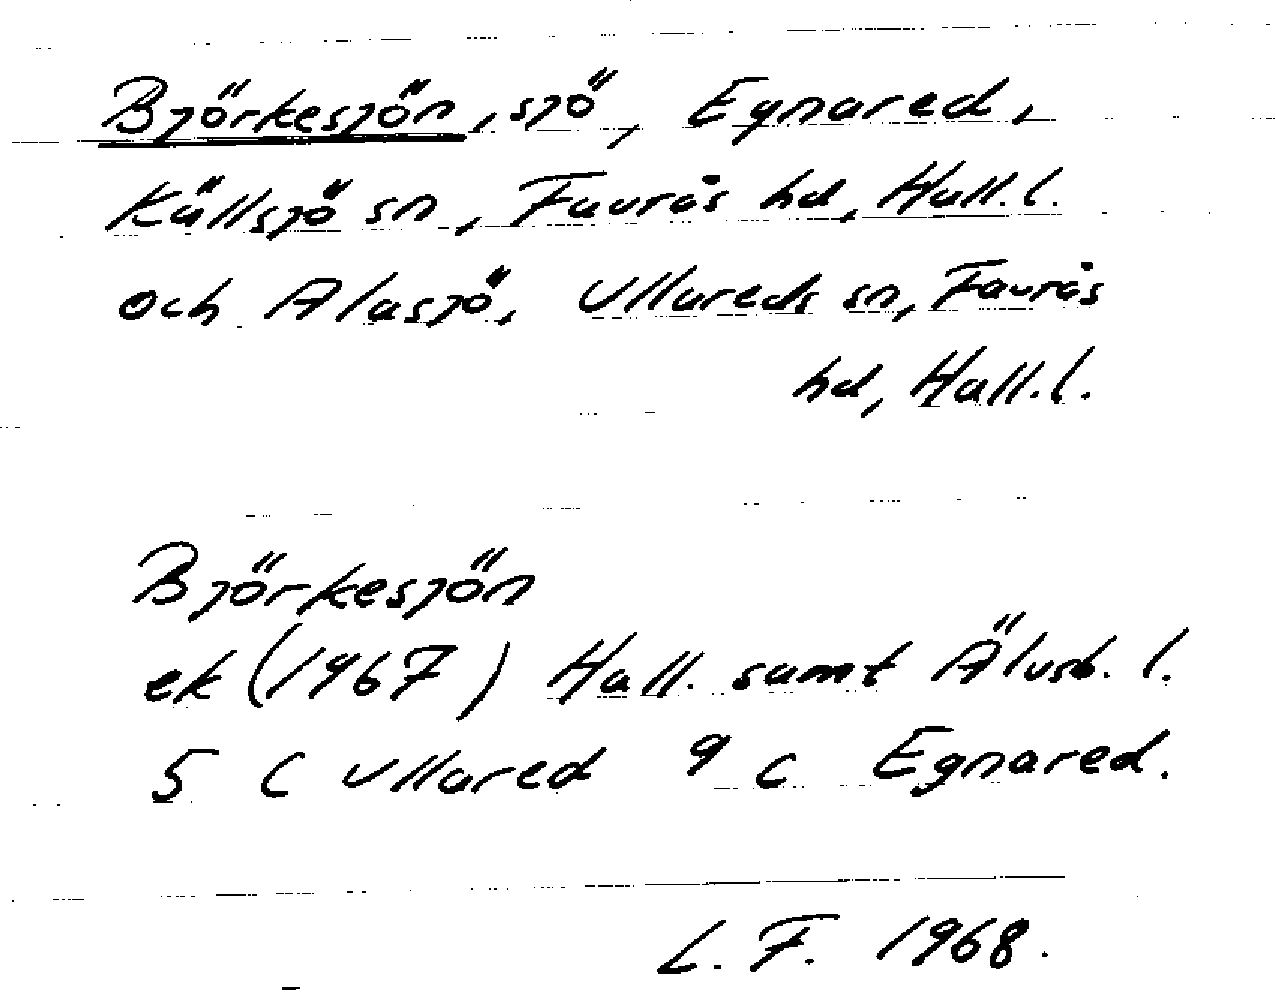 Björkesjön, sjö, Egnared,
Källsjö sn, Faurås hd, Hall.l.
och Alasjö, Ullareds sn, Faurås
hd, Hall.l.
Björkesjön
ek (1967) Hall. samt Älvsb. l.
5 C Ullared 9 c Egnared.
L. F. 1968.